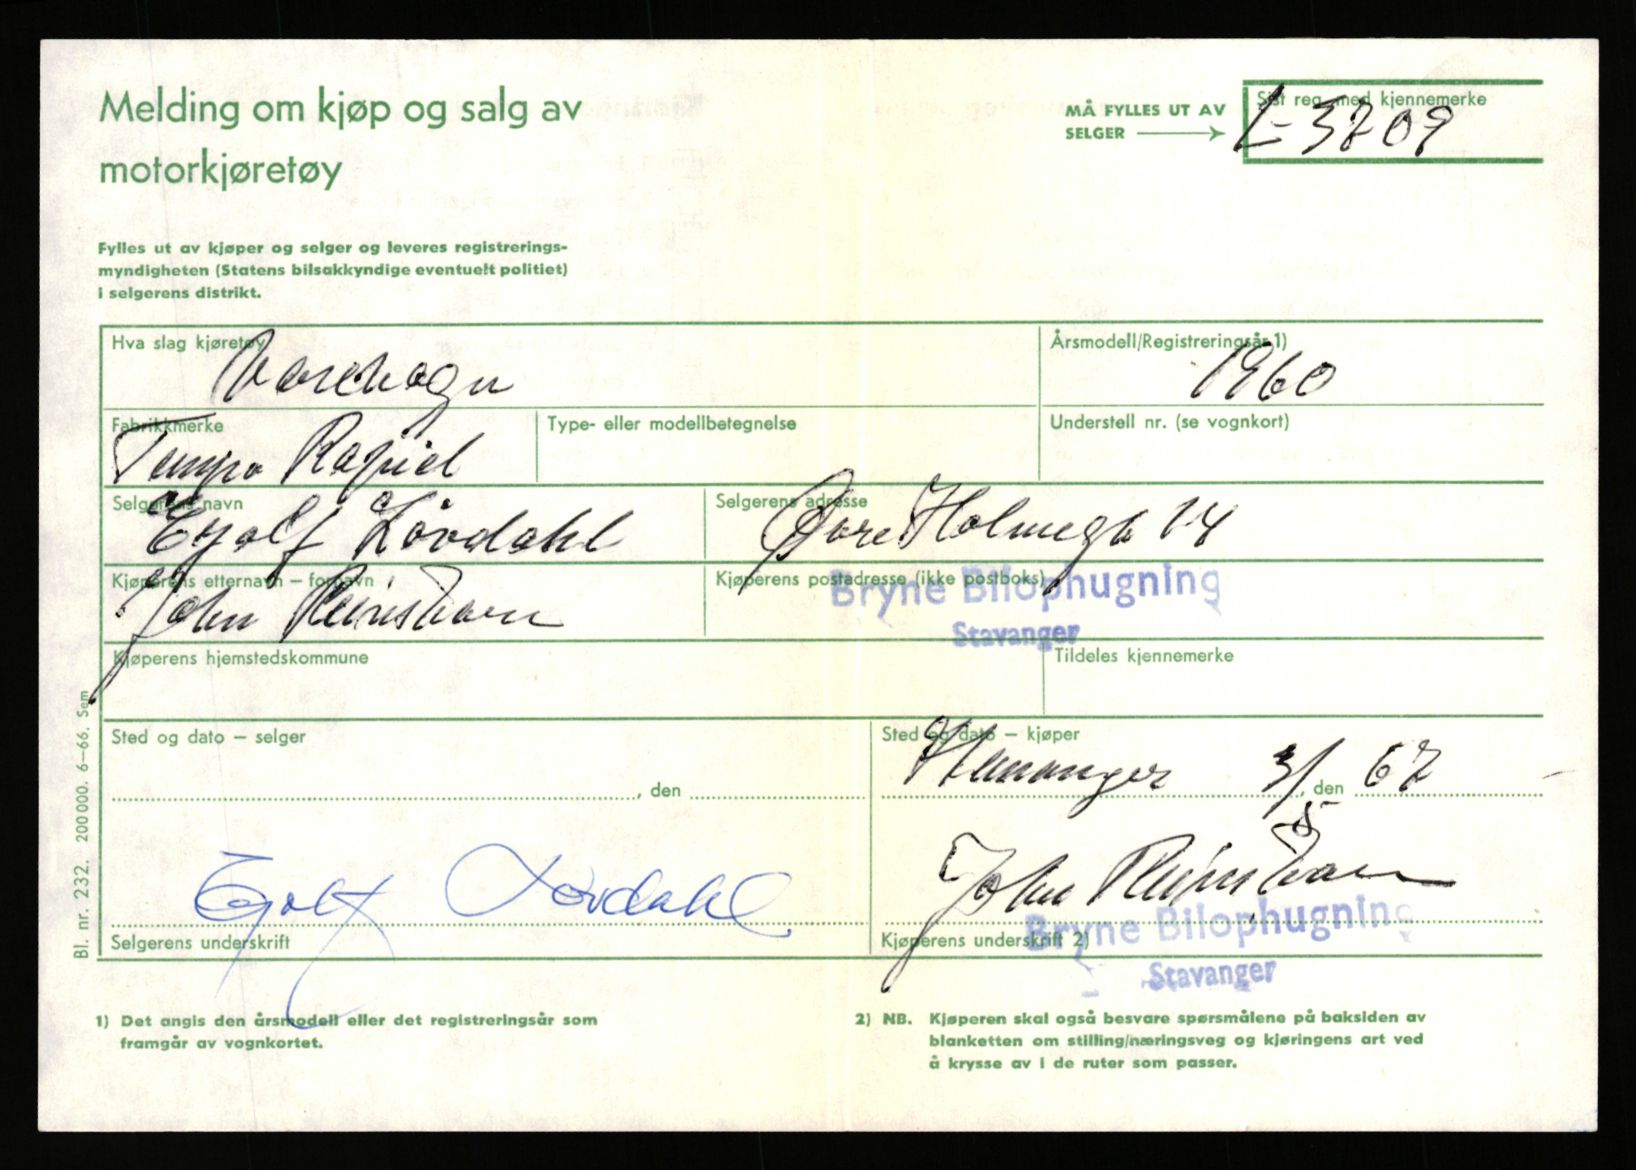 Melding om kjøp og salg av
motorkjøretøy
MÅ FYLLES UT AV
SELGER
Sist reg. med kjennemerke
L-3709
Fylles ut av kjøper og selger og leveres registrerings-
myndigheten (Statens bilsakkyndige eventuelt politiet)
i selgerens distrikt.
Hva slag kjøretøy
Varevogn
Årsmodell/Registreringsår 1)
1960
Fabrikkmerke
Tempo Rapid
Type- eller modellbetegnelse
Understell nr. (se vognkort)
Selgerens navn
Lövdahl
Selgerens adresse
14
Kjøperens etternavn – fornavn
John
Kjøperens postadresse (ikke postboks)
Bryne Bilophugning
Stavanger
Kjøperens hjemstedskommune
Tildeles kjennemerke
Sted og dato – selger
, den
Sted og dato – kjøper
Stavanger 3/5, den 67
Lövdahl
Selgerens underskrift
John
Kjøperens underskrift 2)
Bryne Bilophugning
Stavanger
1) Det angis den årsmodell eller det registreringsår som
framgår av vognkortet.
2) NB. Kjøperen skal også besvare spørsmålene på baksiden av
blanketten om stilling/næringsveg og kjøringens art ved
å krysse av i de ruter som passer.
Bl. nr. 232. 200000. 6–66. Sem